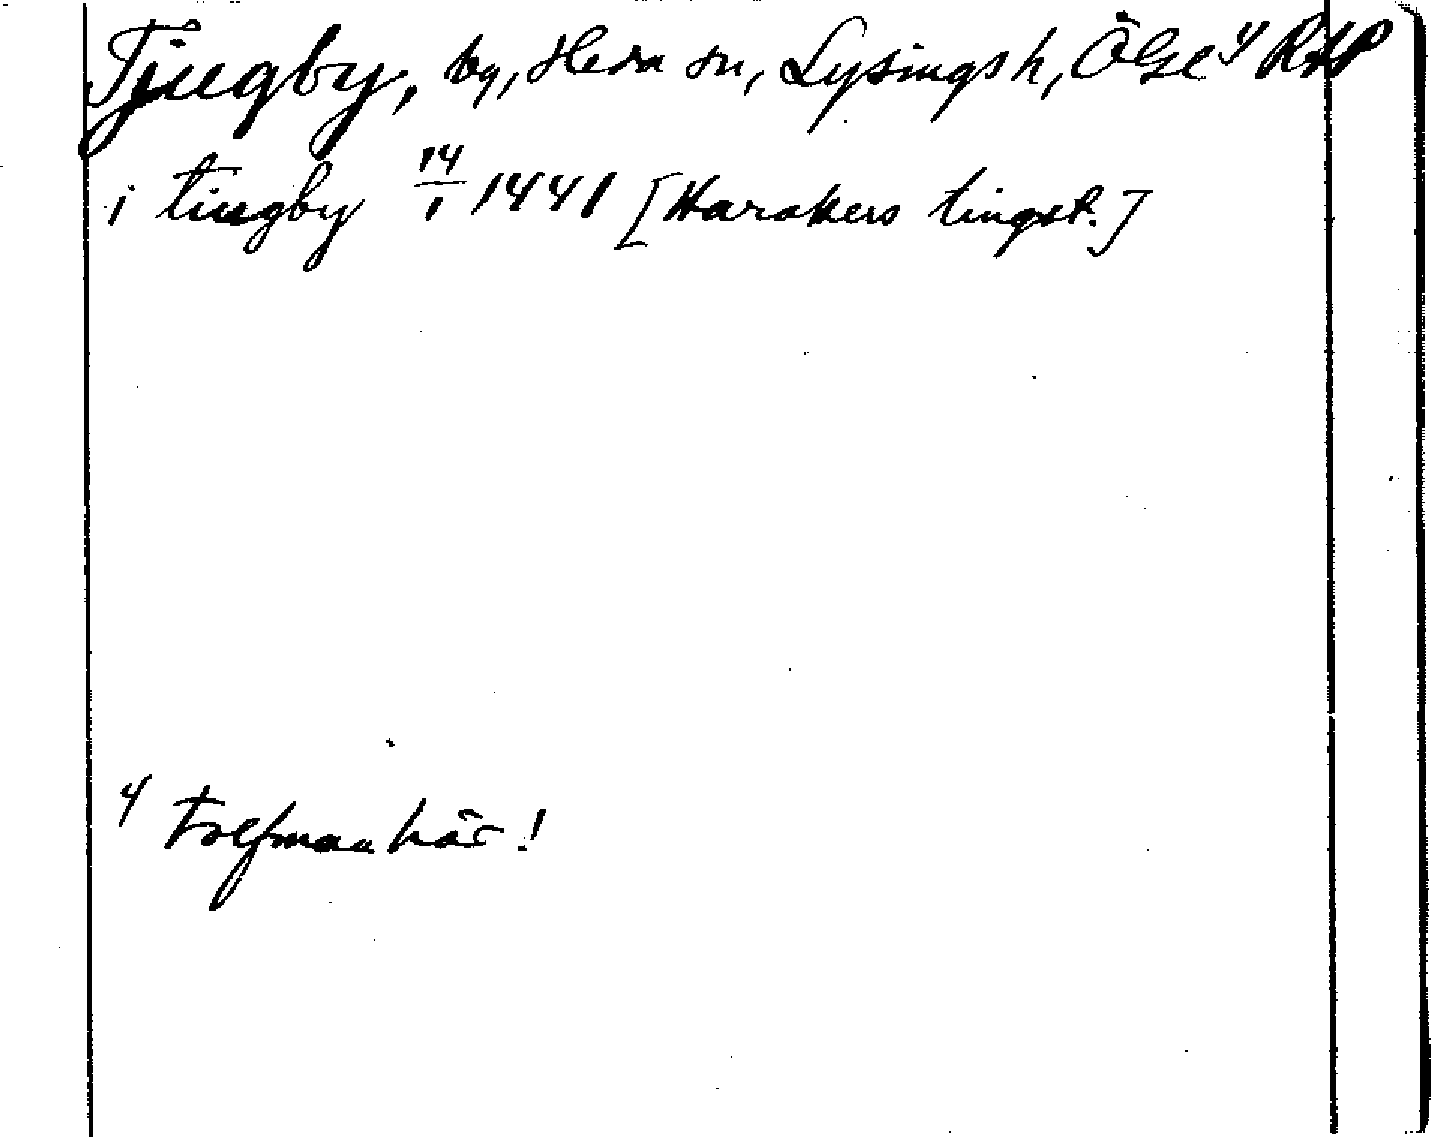 Tjugby, by, Heda sn, Lysings h, Ögl 1) RAP
i tiugby 14/1 1441 [Harakers tingst.]
1) Tolfman här!